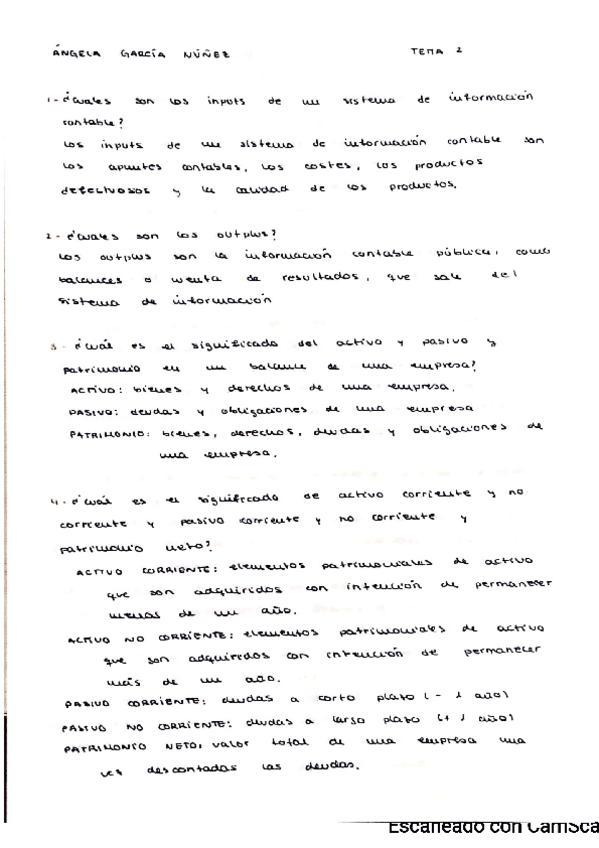 ÁNGELA GARCÍA NÚÑEZ TEMA 2
1- ¿Cuáles son los inputs de un sistema de información
contable?
Los inputs de un sistema de información contable son
los apuntes contables, los costes, los productos
defectuosos y la calidad de los productos.
2- ¿Cuáles son los outputs?
Los outputs son la información contable pública, como
balances o cuenta de resultados, que sale del
sistema de información
3- ¿Cuál es el significado del activo y pasivo y
patrimonio en un balance de una empresa?
ACTIVO: bienes y derechos de una empresa.
PASIVO: deudas y obligaciones de una empresa
PATRIMONIO: bienes, derechos, deudas y obligaciones de
una empresa.
4- ¿Cuál es el significado de activo corriente y no
corriente y pasivo corriente y no corriente y
patrimonio neto?
ACTIVO CORRIENTE: elementos patrimoniales de activo
que son adquiridos con intención de permanecer
menos de un año.
ACTIVO NO CORRIENTE: elementos patrimoniales de activo
que son adquiridos con intención de permanecer
más de un año.
PASIVO CORRIENTE: deudas a corto plazo (- 1 año)
PASIVO NO CORRIENTE: deudas a largo plazo (+ 1 año)
PATRIMONIO NETO: valor total de una empresa una
vez descontadas las deudas.
Escaneado con CamSca